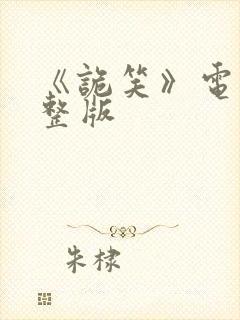 《詭笑》電
整版
朱棣